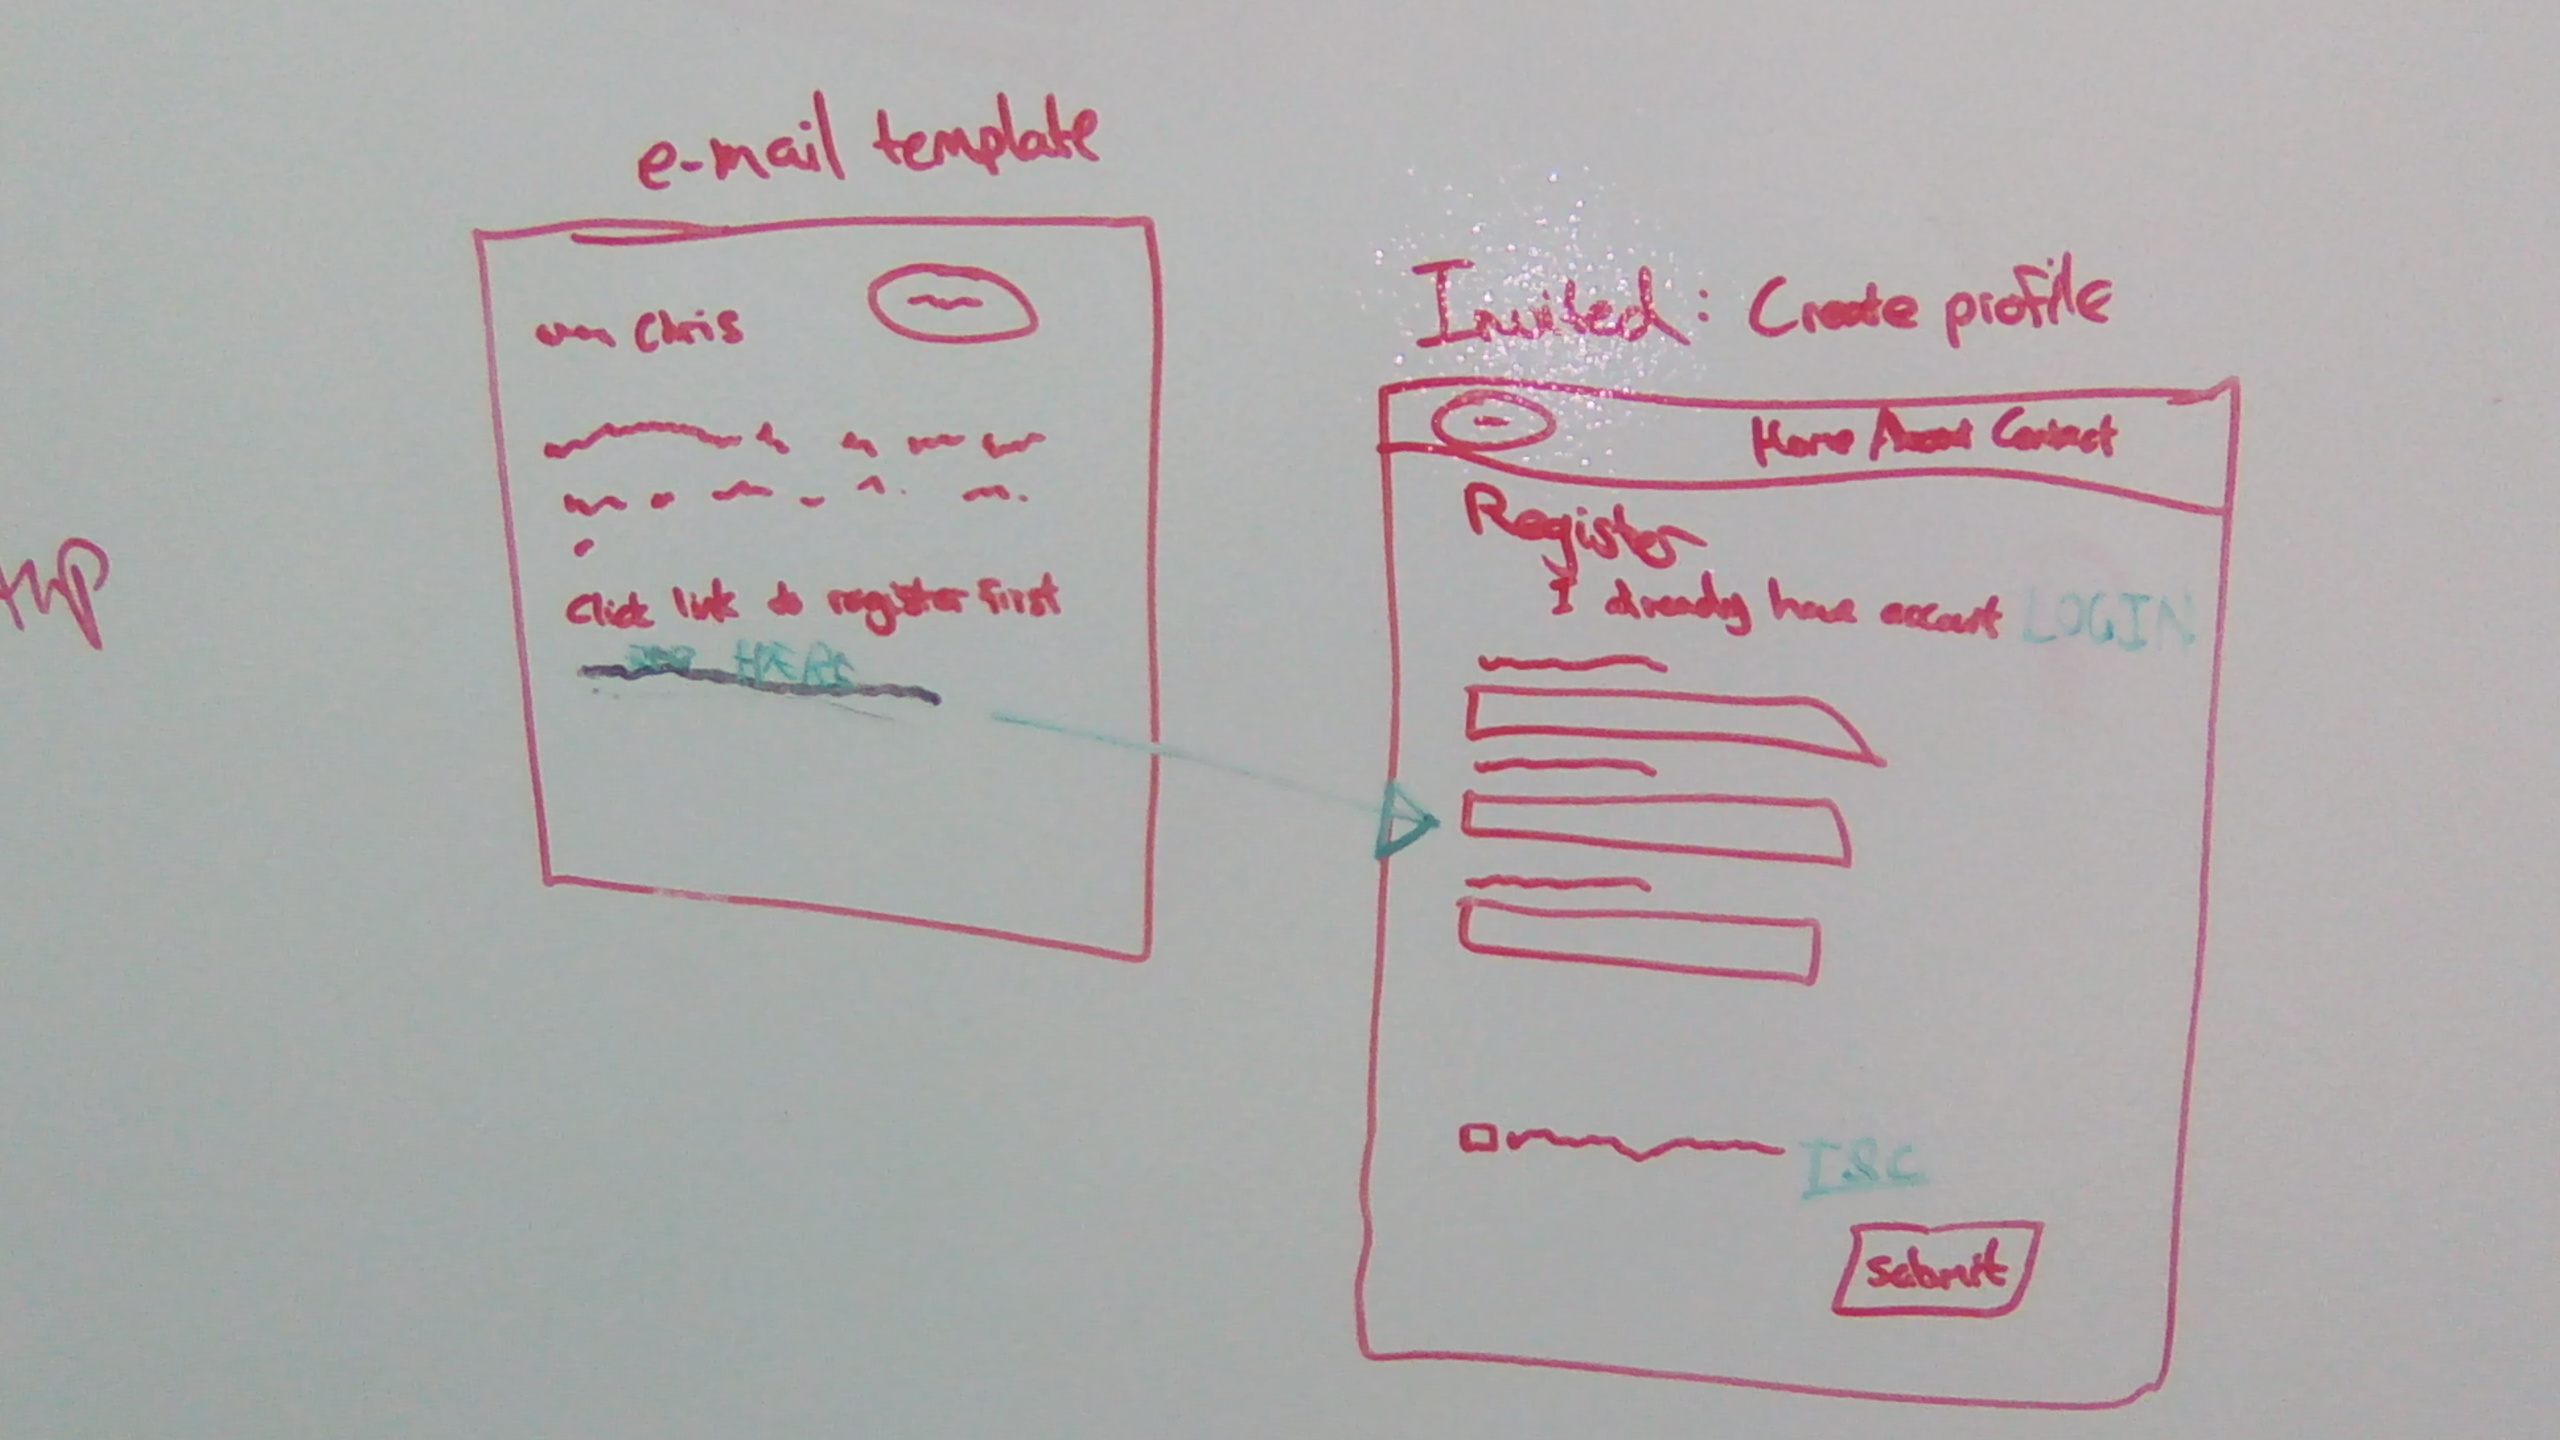 e-mail template
Chris
Click link to register first
HERE
Invited: Create profile
Home About Contact
Register
I already have account LOGIN
submit